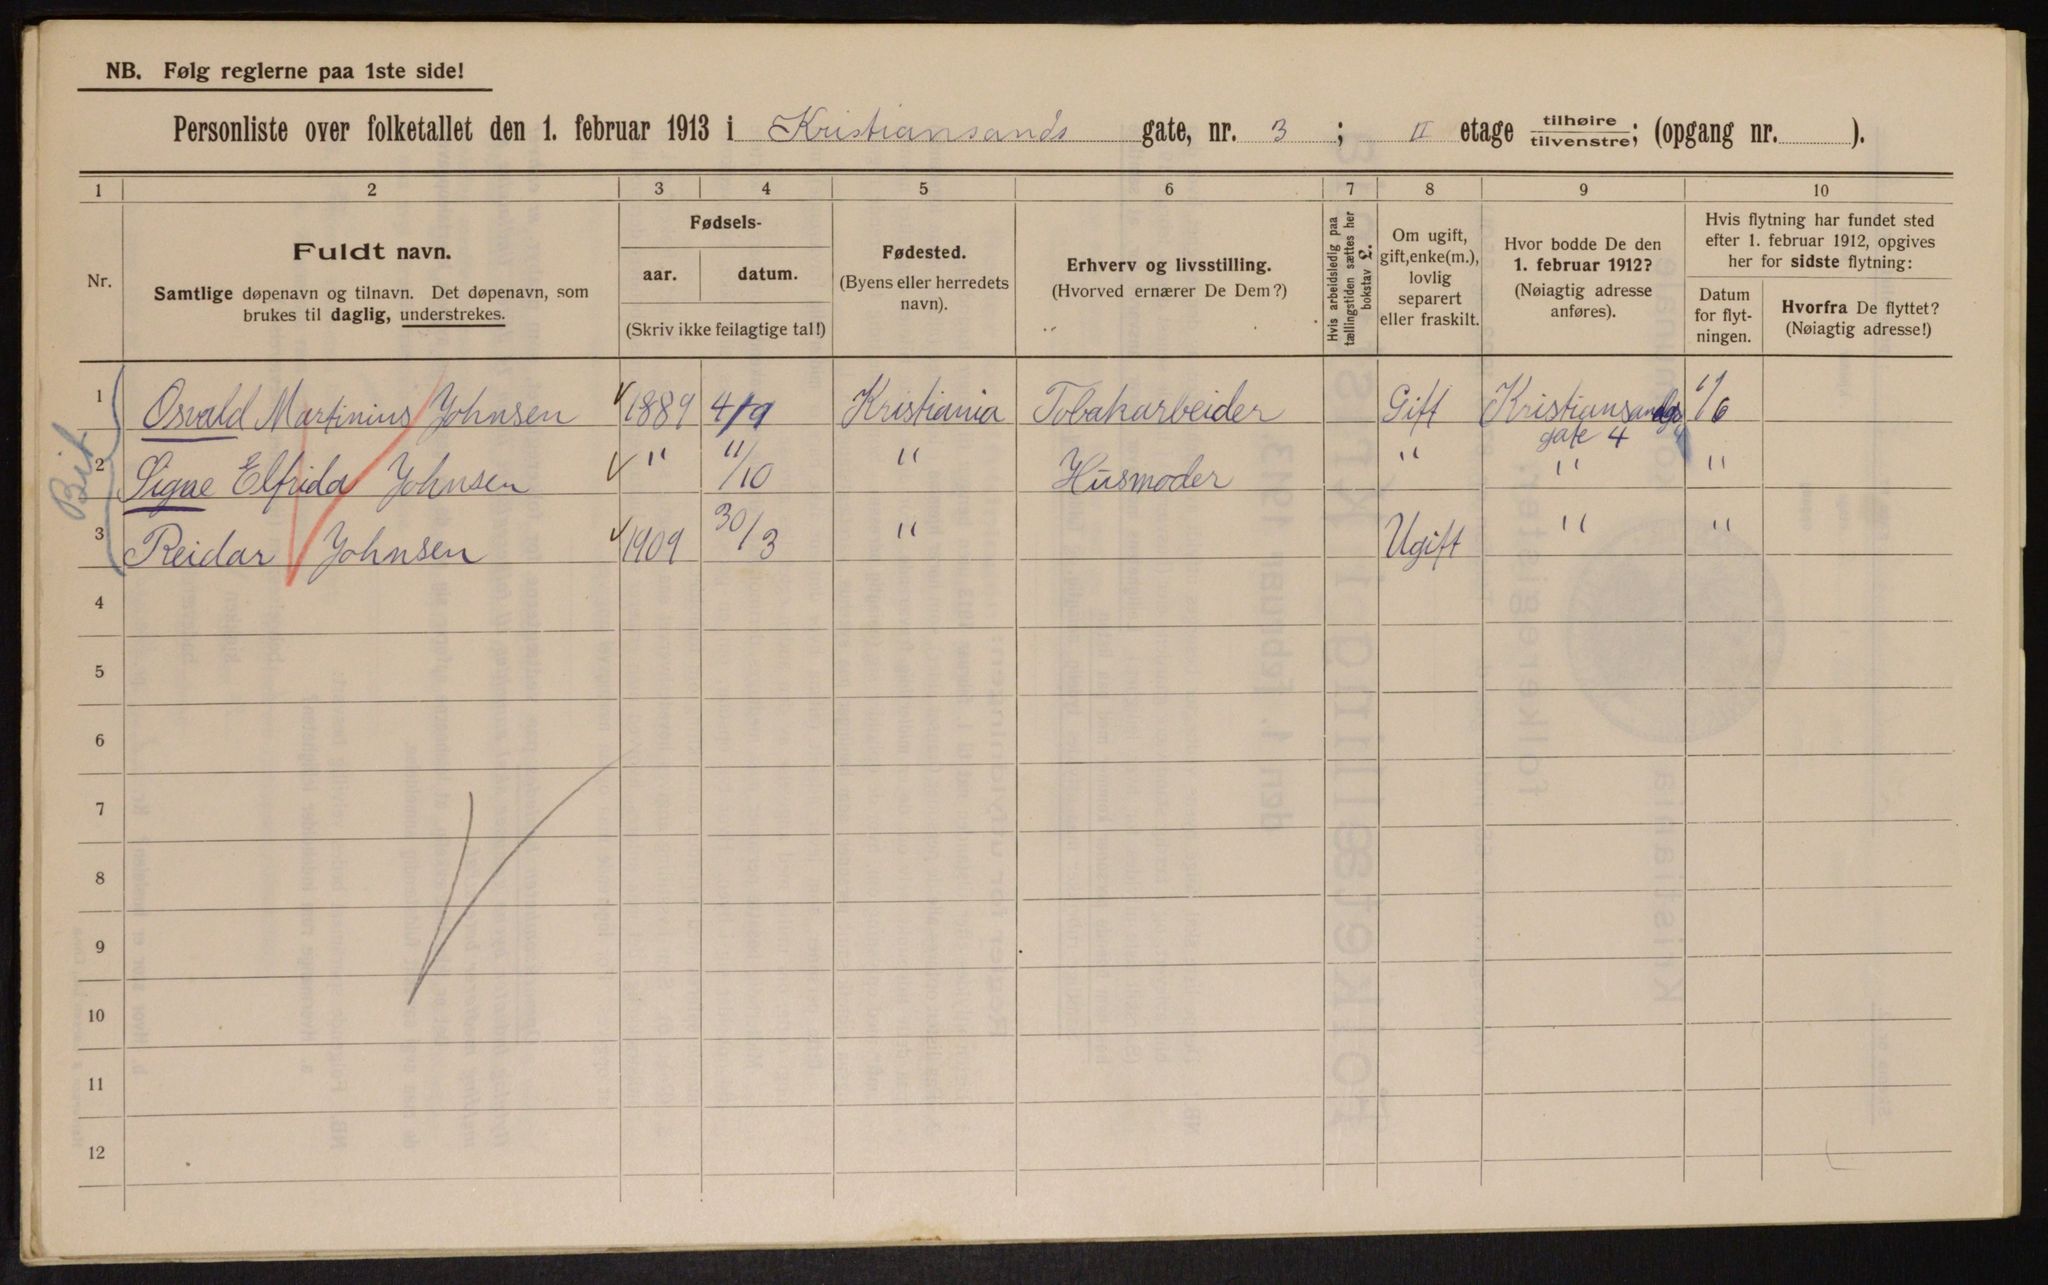 NB. Følg reglerne paa 1ste side!
Personliste over folketallet den 1. februar 1913 i Kristiansands gate, nr. 3 ; II etage tilhøire/tilvenstre; (opgang nr. ).
1 2 3 4 5 6 7 8 9 10
Nr.
Fuldt navn.
Samtlige døpenavn og tilnavn. Det døpenavn, som
brukes til daglig, understrekes.
Fødsels-
aar. datum.
(Skriv ikke feilagtige tal!)
Fødested.
(Byens eller herredets
navn).
Erhverv og livsstilling.
(Hvorved ernærer De Dem?)
Hvis arbeidsledig paa
tællingstiden sættes her
bokstav L.
Om ugift,
gift, enke(m.),
lovlig
separert
eller fraskilt.
Hvor bodde De den
1. februar 1912?
(Nøiagtig adresse
anføres).
Hvis flytning har fundet sted
efter 1. februar 1912, opgives
her for sidste flytning:
Datum
for flyt-
ningen.
Hvorfra De flyttet?
(Nøiagtig adresse!)
1 Osvald Martinius Johnsen 1889 4/9 Kristiania Tobakarbeider Gift Kristiansands 11/6
gate 4
2 Signe Elfrida Johnsen " 11/10 " Husmoder " " "
3 Reidar Johnsen 1909 30/3 " Ugift " "
4
5
6
7
8
9
10
11
12